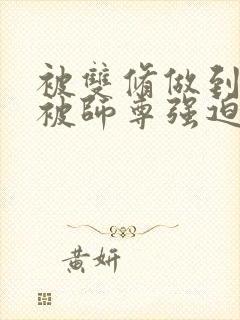 被雙脩做到
被師尊强迫
黃妍